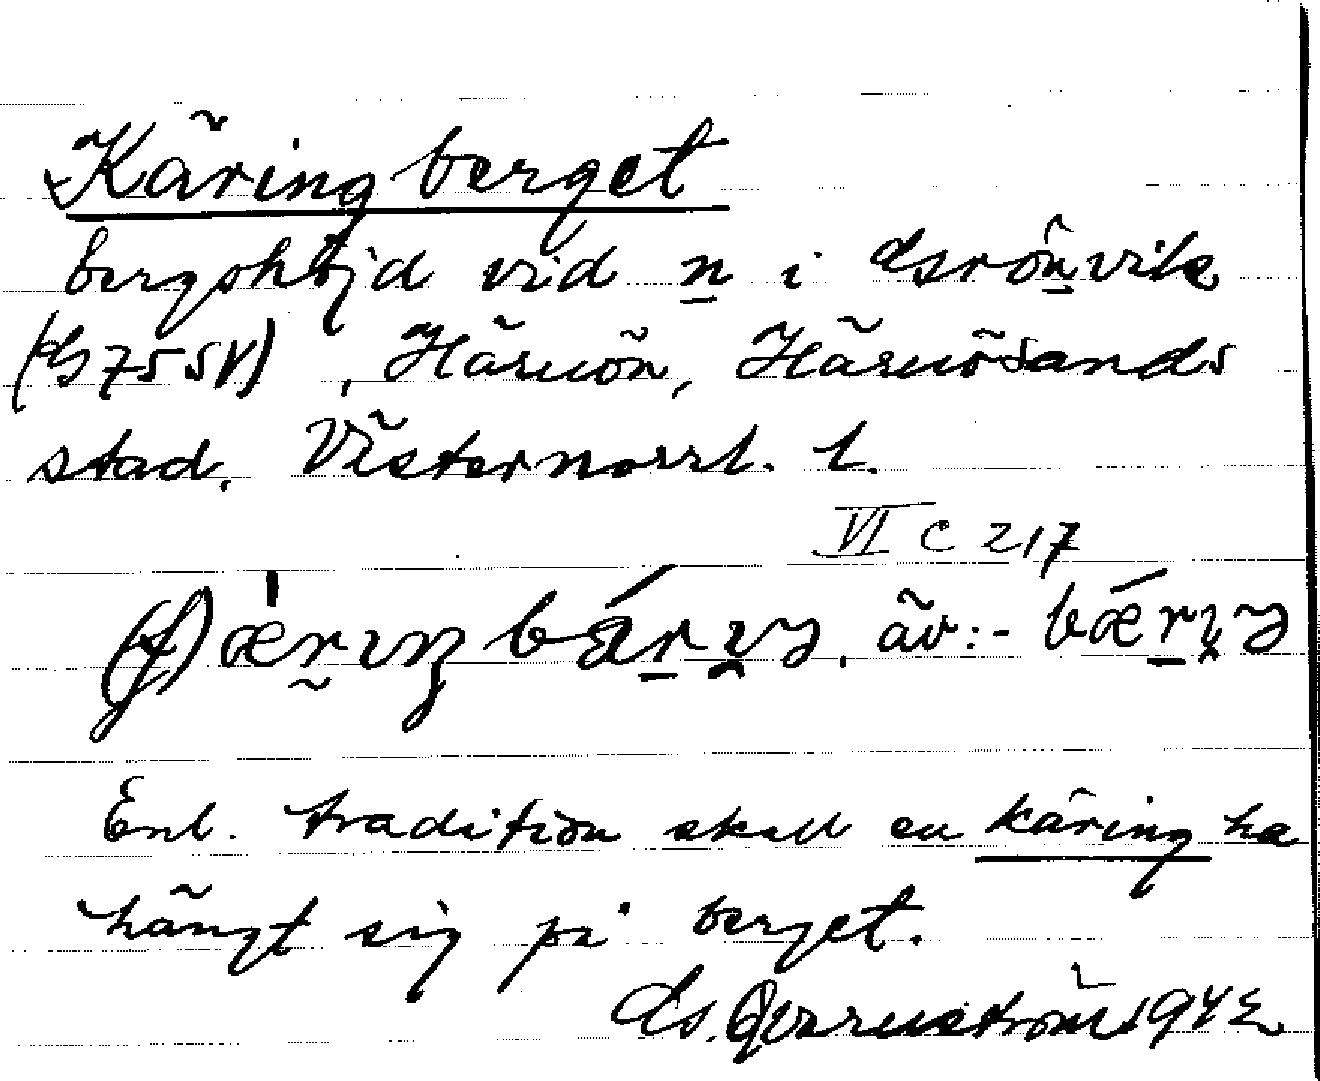 Käringberget
bergshöjd vid n i Grönvik
(G 7 S SV), Härnön, Härnösands
stad. Västernorrl. l.
VI C 217
bærıŋ bárɩ, äv:- bǽrɩ
Enl. tradition skall en käring ha
hängt sig på berget.
G. Qvarnström 1942